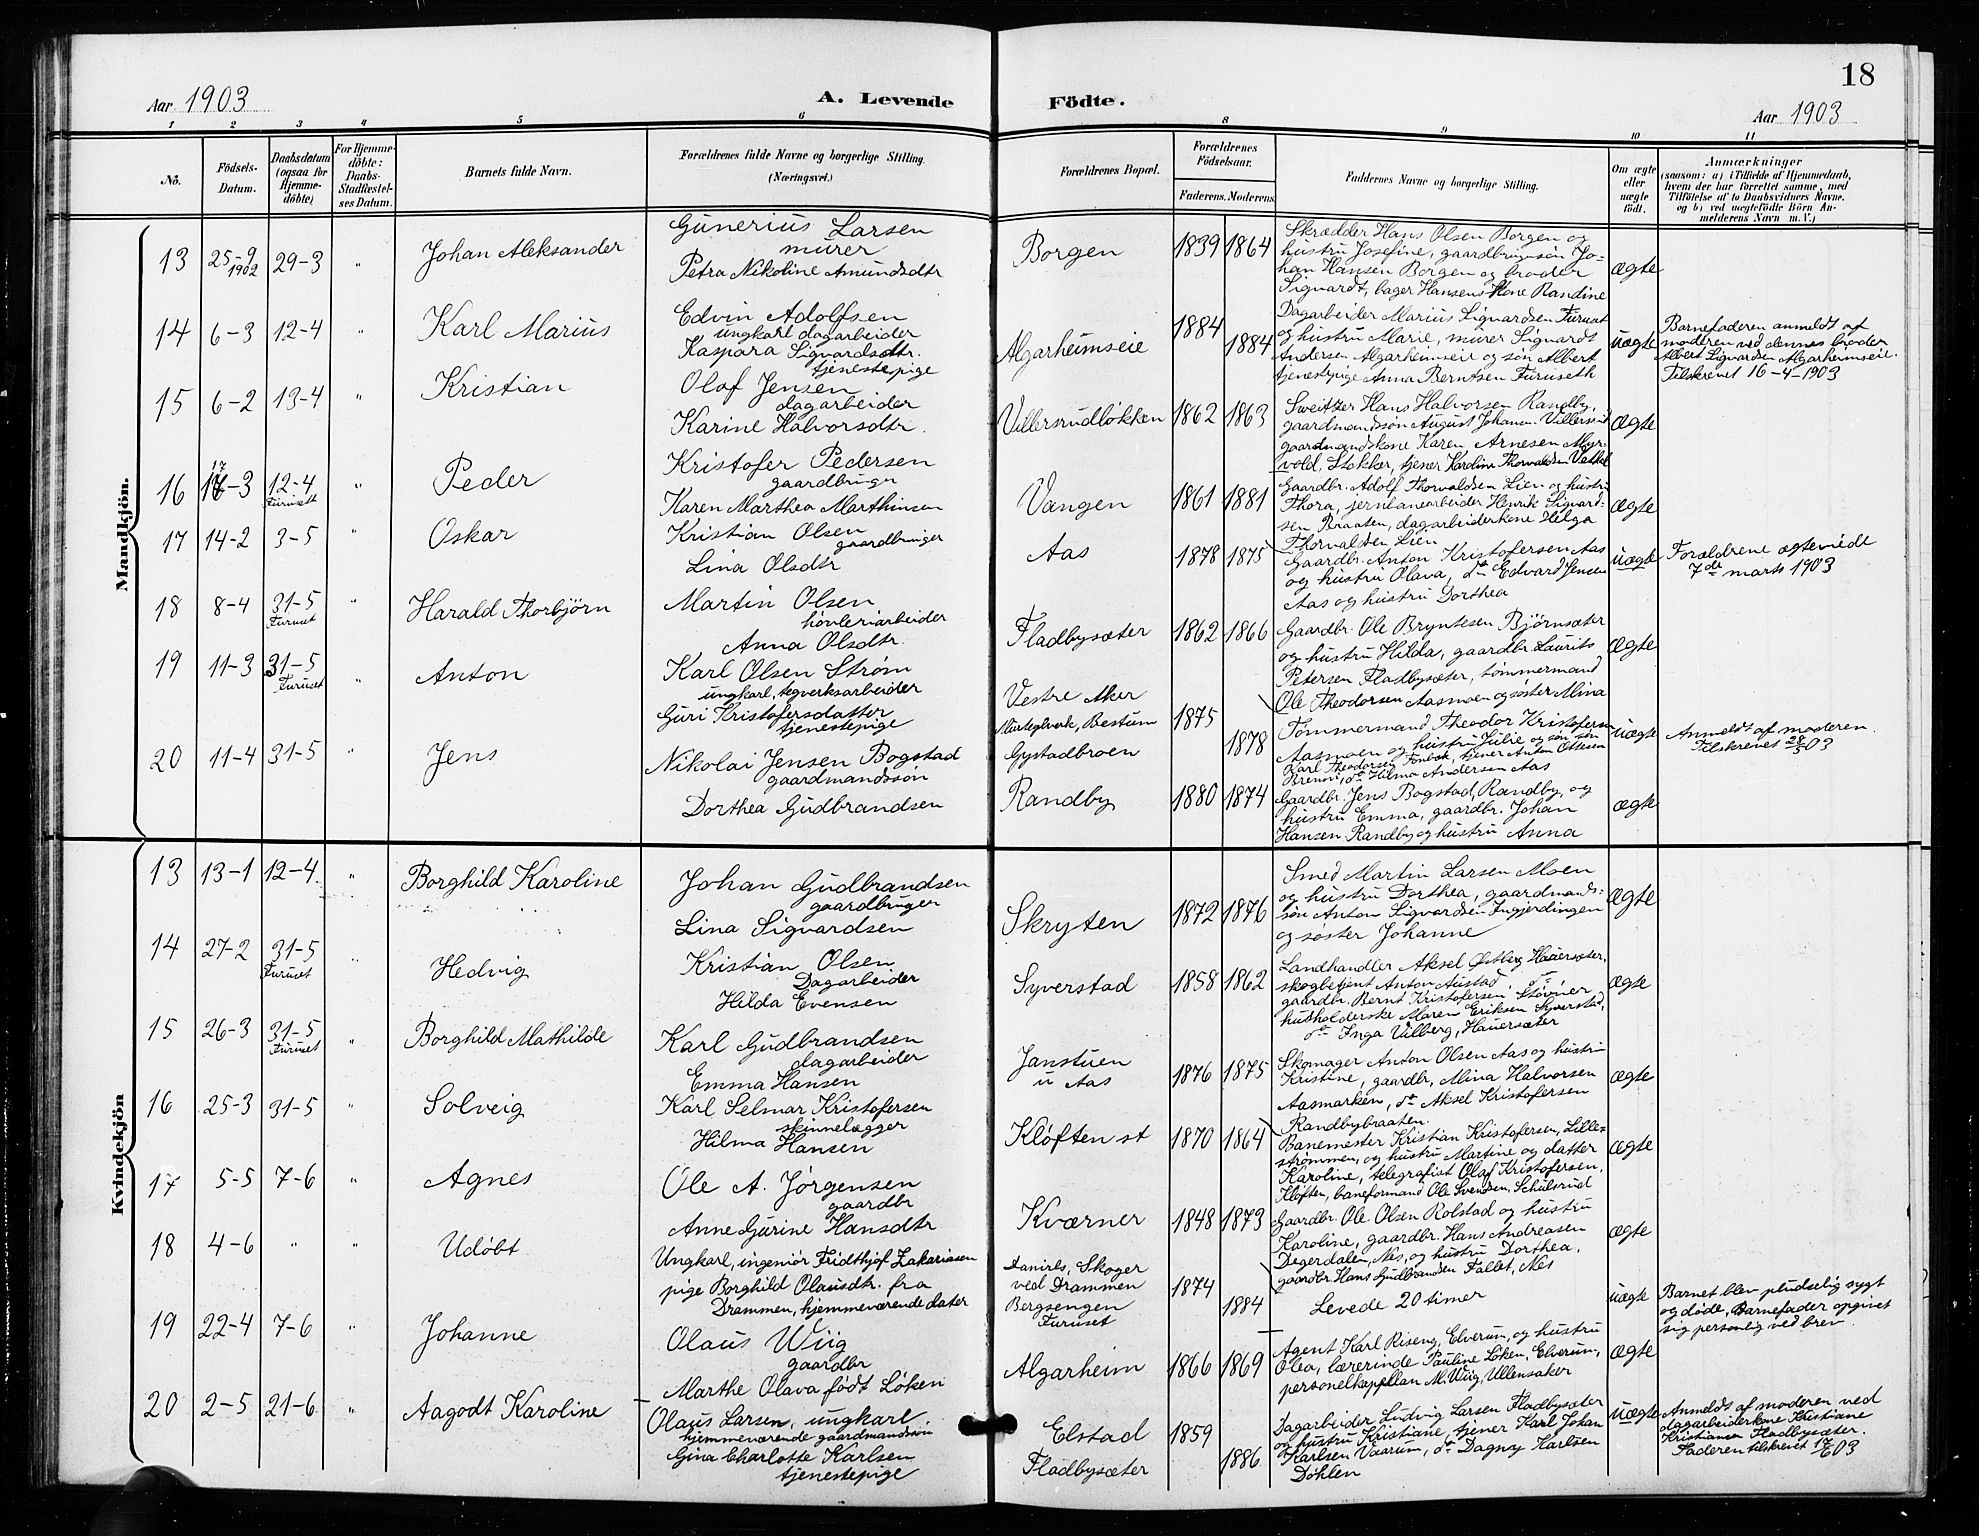 18
Aar 1903 A. Levende Födte. Aar 1903
1 2 3 4 5 6 8 9 10 11
No. Födsels-Datum. Daabsdatum (ogsaa for Hjemme-döbte) For Hjemme-döbte: Daabs-Stadfæstel-ses Datum. Barnets fulde Navn. Forældrenes fulde Navne og borgerlige Stilling. (Næringsvei.) Forældrenes Bopæl. Forældrenes Födselsaar. Faderens. Moderens. Faddernes Navne og borgerlige Stilling. Om ægte eller uægte födt. Anmærkninger (saasom: a) i Tilfælde af Hjemmedaab, hvem der har forrettet samme, med Tilföielse af to Daabsvidners Navne. og b) ved uægtefödte Börn Anmelderens Navn m. V.)
Mandkjön.
13 25-9 1902 29-3 " Johan Aleksander
Gunerius Larsen
murer
Petra Nikoline Amundsdtr
Borgen 1839 1864
Skrædder Hans Olsen Borgen og
hustru Josefine, gaardbrugersøn Jo-
han Hansen Borgen og broder
Sigvardt, bager Hansens Kone Randine
ægte
14 6-3 12-4 " Karl Marius
Edvin Adolfsen
ungkarl dagarbeider
Kaspara Sigvardsdtr.
tjenestepige
Algarheimseie 1884 1884
Dagarbeider Marius Sigvardsen Furuset
og hustru Marie, murer Sigvardt
Andersen Algarheimseie og søn Albert
tjenestepige Anna Berntsen Furuseth
uægte
Barnefaderen anmeldt af
moderen ved dennes broder
Albert Sigvardsen Algarheimseie.
Tilskrevet 16-4-1903
15 6-2 13-4 " Kristian
Olaf Jensen
dagarbeider
Karine Halvorsdtr.
Villersrudløkken 1862 1863
Sweitzer Hans Halvorsen Randby,
gaardmandssøn August Johansen Villersrud
gaardmandskone Karen Arnesen Myr-
vold, Stokker, tjener Karoline Thorvaldsen
ægte
16 17-3 12-4 Furuset " Peder
Kristofer Pedersen
gaardbruger
Karen Marthea Marthinsen
Vangen 1861 1881
Gaardbr. Adolf Thorvaldsen Lien og hustru
Thora, jernbanearbeider Henrik Sigvard-
sen Braaten, dagarbeiderkone Helga
Thorvaldsen Lien
ægte
17 14-2 3-5 " Oskar
Kristian Olsen
gaardbruger
Lina Olsdtr
Aas 1878 1875
Gaardbr. Anton Kristofersen Aas
og hustru Olava, do Edvard Jensen
Aas og hustru Dorthea
uægte
Forældrene ægteviede
7de marts 1903
18 8-4 31-5 Furuset " Harald Thorbjørn
Martin Olsen
høvleriarbeider
Anna Olsdtr.
Fladbysæter 1862 1866
Gaardbr. Ole Bryntesen Bjørnsæter
og hustru Hilda, gaardbr. Laurits
Petersen Fladbysæter, tømmermand
Ole Theodorsen Aasmoen og søster Mina
ægte
19 11-3 31-5 Furuset " Anton
Karl Olsen Strøm
ungkarl, tegverksarbeider
Guri Kristofersdatter
tjenestepige
Vestre Aker
Bestum
Gystadbroen
1875 1878
Tømmermand Theodor Kristofersen
Aasmoen og hustru Julie og søn
Karl Theodorsen tjener Anton Ottesen
do Hilma Andersen Aas
uægte
Anmeldt af moderen.
Tilskrevet 28/5 03
20 11-4 31-5 " Jens
Nikolai Jensen Bogstad
gaardmandssøn
Dorthea Gudbrandsen
Randby 1880 1874
Gaardbr. Jens Bogstad, Randby, og
hustru Emma, gaardbr. Johan
Hansen Randby og hustru Anna
ægte
Kvindekjön
13 13-1 12-4 " Borghild Karoline
Johan Gudbrandsen
gaardbruger
Lina Sigvardsen
Skryten 1872 1876
Smed Martin Larsen Moen
og hustru Dorthea, gaardmands-
søn Anton Sigvardsen Ingjerdingen
og søster Johanne
ægte
14 27-2 31-5 Furuset " Hedvig
Kristian Olsen
Dagarbeider
Hilda Evensen
Syverstad 1858 1862
Landhandler Aksel Østberg Hauersæter,
skogbetjent Anton Austad do
gaardbr. Bernt Kristofersen Støvner
husholderske Maren Eriksen Syverstad,
do Inga Vilberg, Hauersæter
ægte
15 26-3 31-5 Furuset " Borghild Mathilde
Karl Gudbrandsen
dagarbeider
Emma Hansen
Janstuen
u Aas
1876 1875
Skomager Anton Olsen Aas og hustru
Kristine, gaardbr. Mina Halvorsen
Aasmarken, do Aksel Kristofersen
Randbybraaten.
ægte
16 25-3 31-5 " Solveig
Karl Selmar Kristofersen
skinnelægger
Hilma Hansen
Kløften st 1870 1864
Banemester Kristian Kristofersen, Lille-
strømmen, og hustru Martine og datter
Karoline, telegrafist Olaf Kristofersen,
Kløften, baneformand Ole Svendsen, Schulsrud
ægte
17 5-5 7-6 " Agnes
Ole A. Jørgensen
gaardbr
Anne Gurine Hansdtr
Kværner 1848 1873
Gaardbr Ole Olsen Rolstad og hustru
Karoline, gaardbr. Hans Andreasen
Degerdalen, Nes, og hustru Dorthea,
gaardbr. Hans Gudbrandsen Fallet, Nes
ægte
18 4-6 " " Udøbt
Ungkarl, ingeniør Fridthjof Zakariasen
pige Borghild Olausdtr. fra
Drammen, hjemmeværende dater
Skoger
ved Drammen
Bergsengen
Furuset
1874 1884
Levede 20 timer
uægte
Barnet blev pludselig sygt
og døde, Barnefader opgivet
sig personlig ved brev
19 22-4 7-6 " Johanne
Olaus Wiig
gaardbr
Marthe Olava født Løken
Algarheim 1866 1869
Agent Karl Riseng, Elverum, og hustru
Olea, lærerinde Pauline Løken, Elverum,
personelkapellan M. Wiig, Ullensaker
ægte
20 2-5 21-6 " Aagodt Karoline
Olaus Larsen, ungkarl.
hjemmeværende gaardmandssøn
Gina Charlotte Karlsen
tjenestepige
Elstad
Fladbysæter
1859 1886
Dagarbeider Ludvig Larsen Fladbysæter
og hustru Kristiane, tjener Karl Johan
Karlsen Vaarum, do Dagny Karlsen
Døhlen
uægte
Anmeldt af moderen ved
dagarbeiderkone Kristiane
Kristiansen Fladbysæter.
Faderen tilskrevet 17/6 03